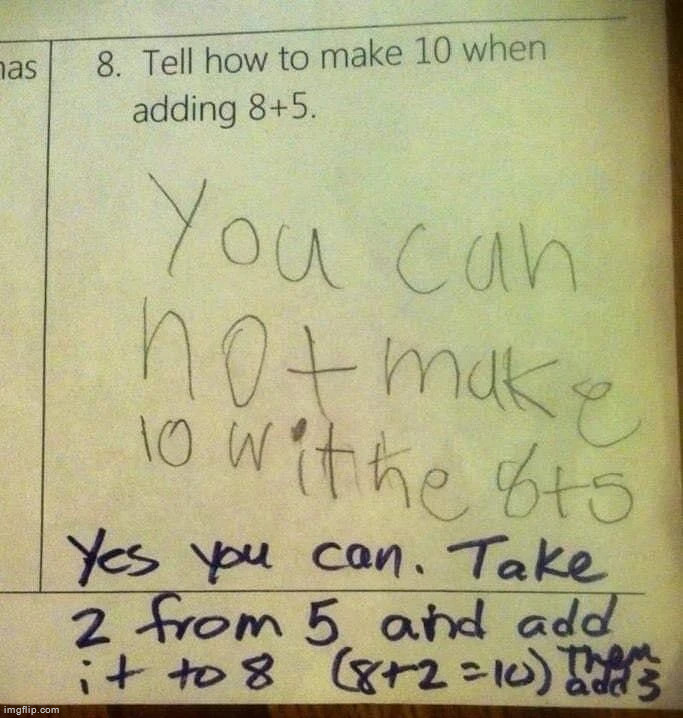 has
8. Tell how to make 10 when
adding 8+5.
You can
not make
10 withe 8+5
Yes you can. Take
2 from 5 and add
it to 8 (8+2=10) Then
add 3
imgflip.com